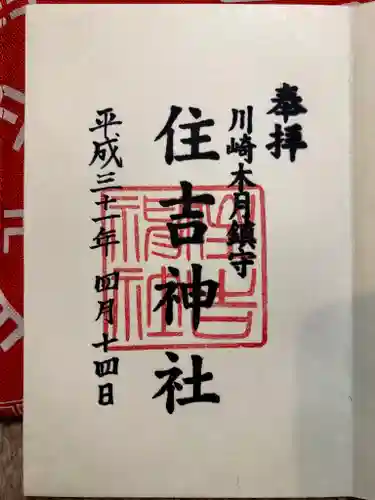 奉拝
川崎木月鎮守
住吉神社
平成三十一年 四月十四日
住吉
神社